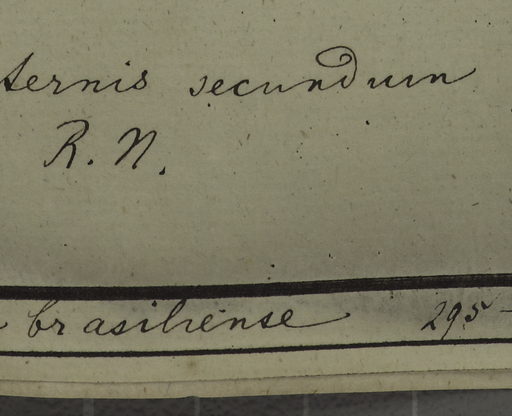 ternis secundum
R. N.
brasiliense 295